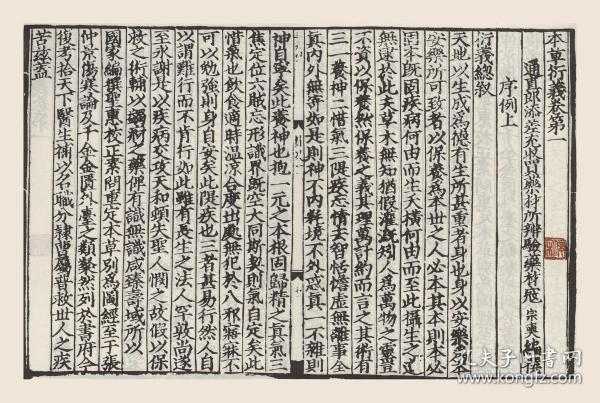 本草衍義卷第一
通直郎添差充收買藥材所辨驗藥材寇宗奭編撰
序例上
衍義總敘
天地以生成為德有生所甚重者身也身以安樂為本
安樂所可致者以保養為本世之人必本其本則本必
固本既固疾病何由而生夭橫何由而至此攝生之道
無逮於此夫草木無知猶假灌溉矧人為萬物之靈豈
不資以保養然保養之義其理萬計約而言之其術有
三一養神二惜氣三隄疾忘情去智恬憺虛無離事全
真內外無寄如是則神不內耗境不外惑真一不雜則
神自寧矣此養神也抱一元之本根固歸精之真氣三
焦定位六賊忘形識界既空大同斯契則氣自定矣此
惜氣也飲食適時溫涼合度出處無犯於八邪寤寐不
可以勉強則身自安矣此隄疾也三者甚易行然人自
以謂難行而不肯行如此雖有長生之法人罕敦尚遂
至永謝是以疾病交攻天和頓失聖人憫之故假以保
救之術輔以蠲痾之藥俾有識無識咸臻壽域所以
國家編撰聖惠校正素問重定本草別為圖經至于張
仲景傷寒論及千金外臺之類粲然列於書府今
復考拾天下醫生補以名職分隸曹屬普救世人之疾
苦茲蓋
孔夫子旧书网